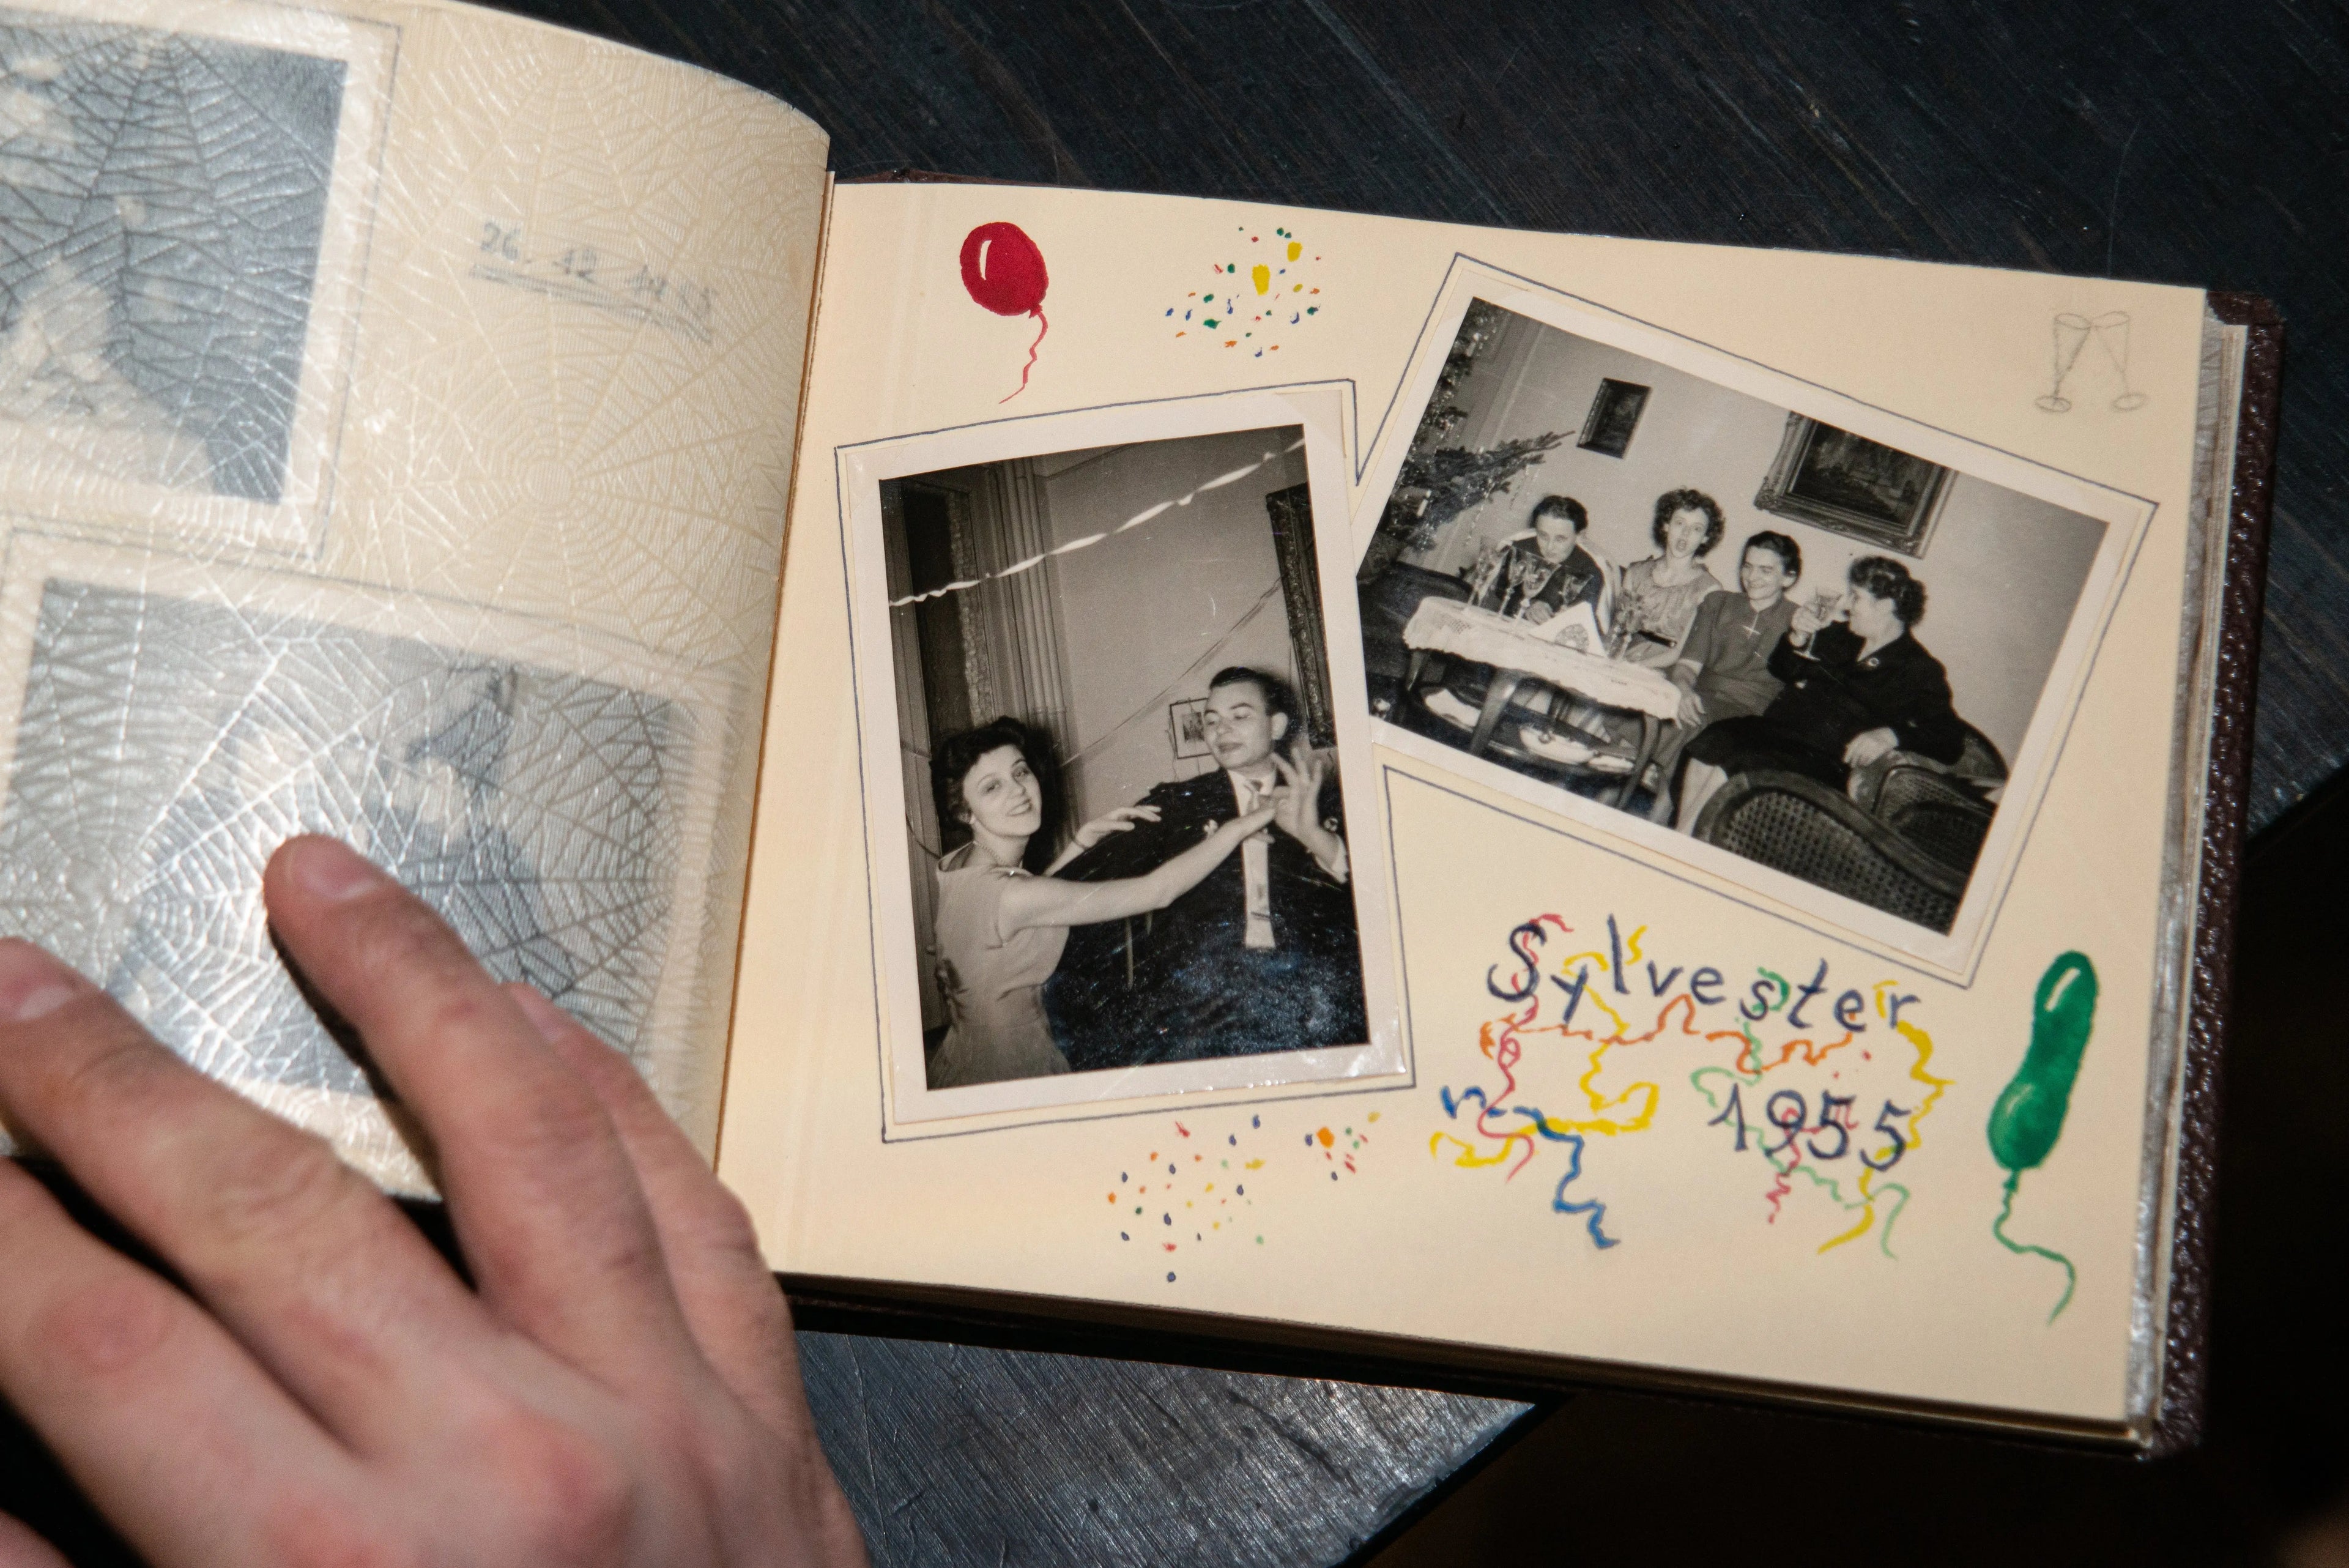 26. 12. 1955
Sylvester
1955